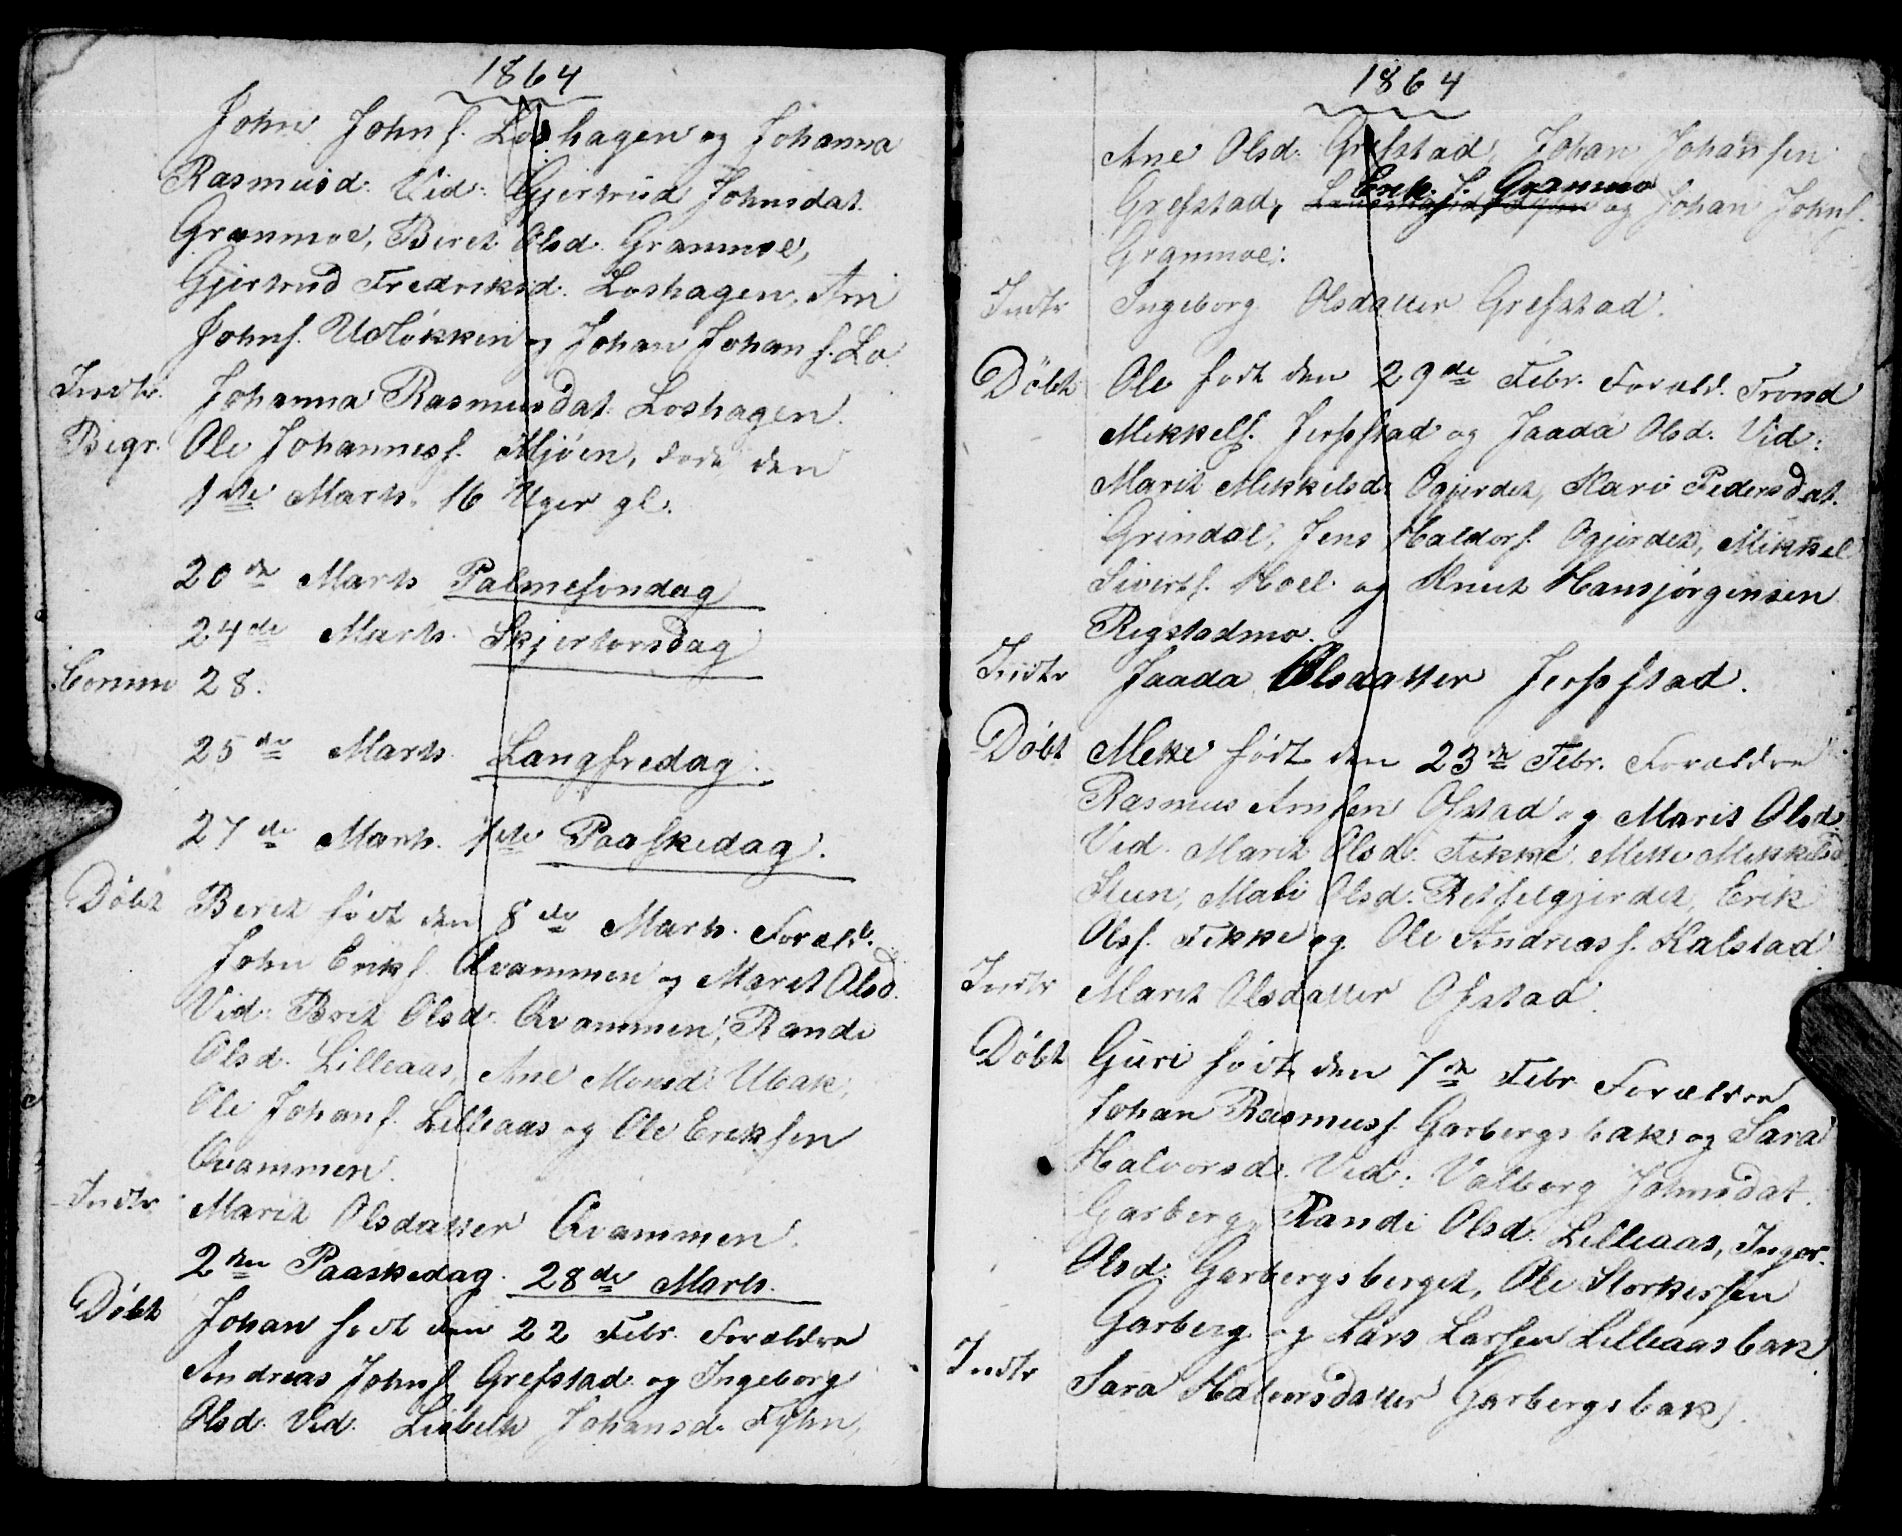 1864
John Johns. Loshagen og Johanna
Rasmusd. Vid: Gjertrud Johnsdat.
Granmoe, Beret Olsd. Granmoe,
Gjertrud Fredriksd. Loshagen, Arn
Johns. Udløkken og Johan Johans. Lo
Indtr. Johanna Rasmusdat. Loshagen.
Begr. Ole Johanness. Mjøen, døde den
1ste Marts. 16 Uger gl.
20de Marts Palmesøndag
24de Marts. Skjertorsdag
Comm 28.
25de Marts. Langfredag.
27de Marts. 1ste Paaskedag.
Døbt Beret født den 8de Marts. Foræld.
John Eriks. Qvammen og Marit Olsd.
Vid: Brit Olsd. Qvammen, Randi
Olsd. Lilleaas, Ane Monsd. Ubak,
Ole Johans. Lilleaas og Ole Eriksen
Qvammen.
Indtr Marit Olsdatter Qvammen.
2den Paaskedag. 28de Marts.
Døbt Johan født den 22 Febr. Forældre
Andreas Johns. Grefstad og Ingeborg
Olsd. Vid. Lisbeth Johansd. Fyhn,
1864
Ane Olsd. Grefstad, Johan Johansen
Erik J. Granmo
Grefstad, og Johan Johns.
Granmoe.
Indtr Ingeborg Olsdatter Grefstad.
Døbt Ole født den 29de Febr. Foræld. Trond
Mikkels. Jerpstad og Jaada Olsd. Vid:
Marit Mikkelsd. Ogjerdet, Kari Pedersdat.
Grindal, Jens Haldors. Ogjerdet, Mikkel
Siverts. Hoel og Knut Hansjørgensen
Rigstadmo.
Indtr Jaada Olsdatter Jerpstad.
Døbt Mette født den 23de Febr. Forældre
Rasmus Arnsen Ofstad og Marit Olsd.
Vid. Marit Olsd. Fikke, Mette Mikkelsd
Steen, Mali Olsd. Retselgjerdet, Erik
Ols. Fikke og Ole Andreass. Kalstad.
Indtr Marit Olsdatter Ofstad.
Døbt Guri født den 7de Febr Forældre
Johan Rasmuss. Garbergsbak og Sara
Halvorsd. Vid: Valborg Johnsdat.
Garberg, Randi Olsd. Lilleaas, Inger
Olsd. Garbergsberget, Ole Storkersen
Garberg og Lars Larsen Lilleaasbak
Indtr Sara Halvorsdatter Garbergsbak.